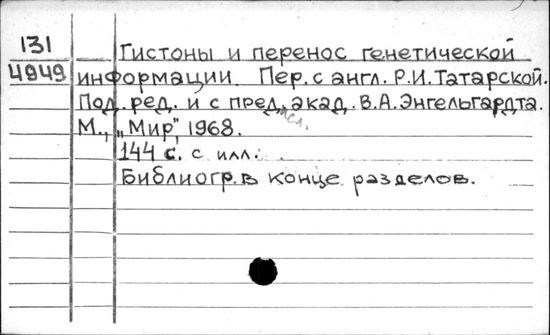 131
4949
Гистоны и перенос генетической
информации. Пер. с англ. Р.И. Татарской.
Под. ред. и с пред. акад. В.А. Энгельгардта.
исл.
М., „Мир", 1968.
144 с. с илл.
Библиогр. в конце разделов.